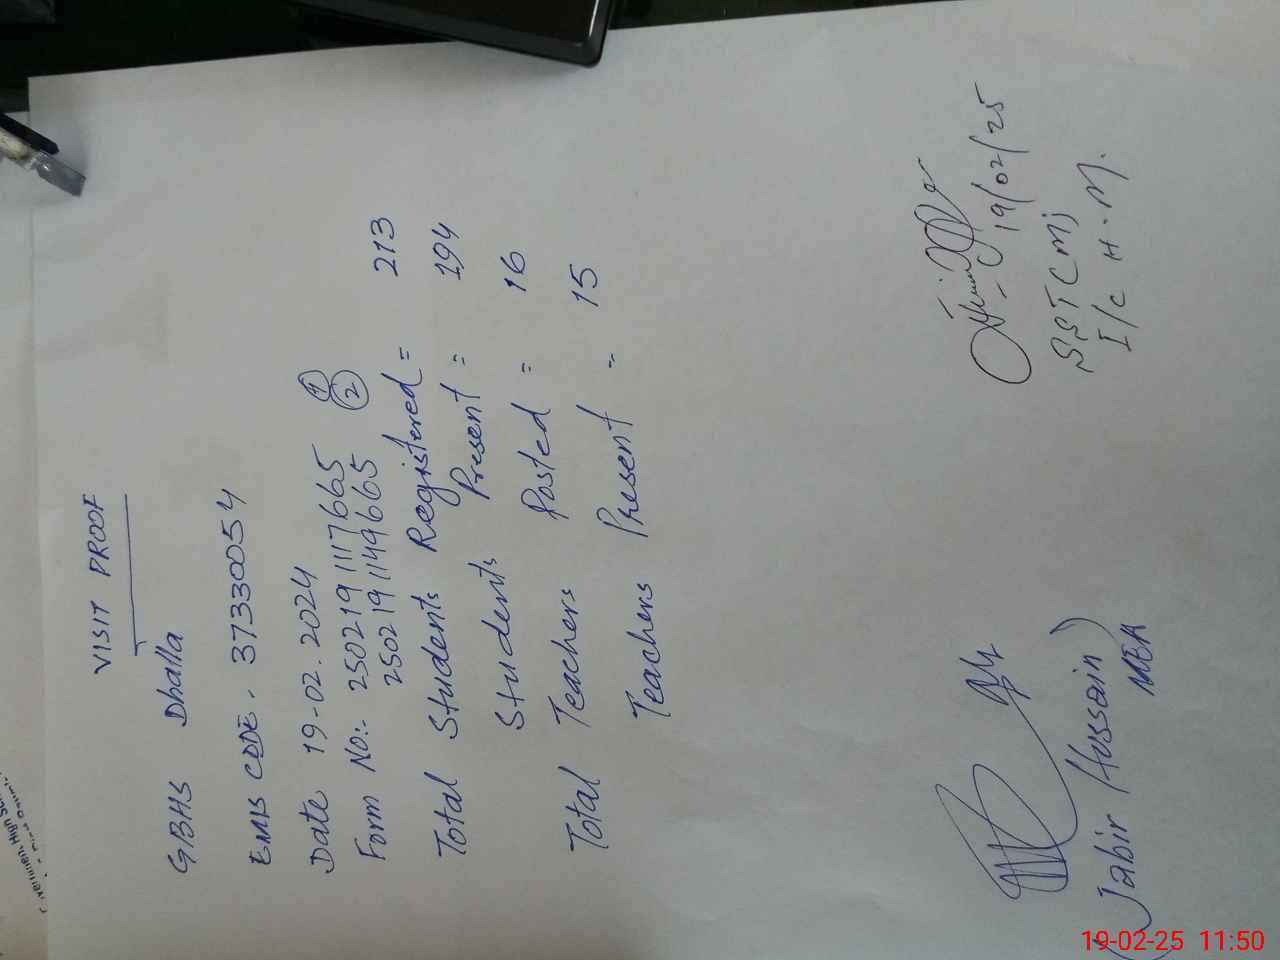 VISIT PROOF
GBHS Dhalla
EMIS CODE. 37330054
Date 19-02.2024
Form No:- 2502191117665 ①
2502191149665 ②
Total Students Registered = 213
Students Present = 194
Total Teachers Posted = 16
Teachers Present = 15
19/02/25
SST (M)
I/c H.M.
(Jabir Hussain)
MEA
19-02-25 11:50